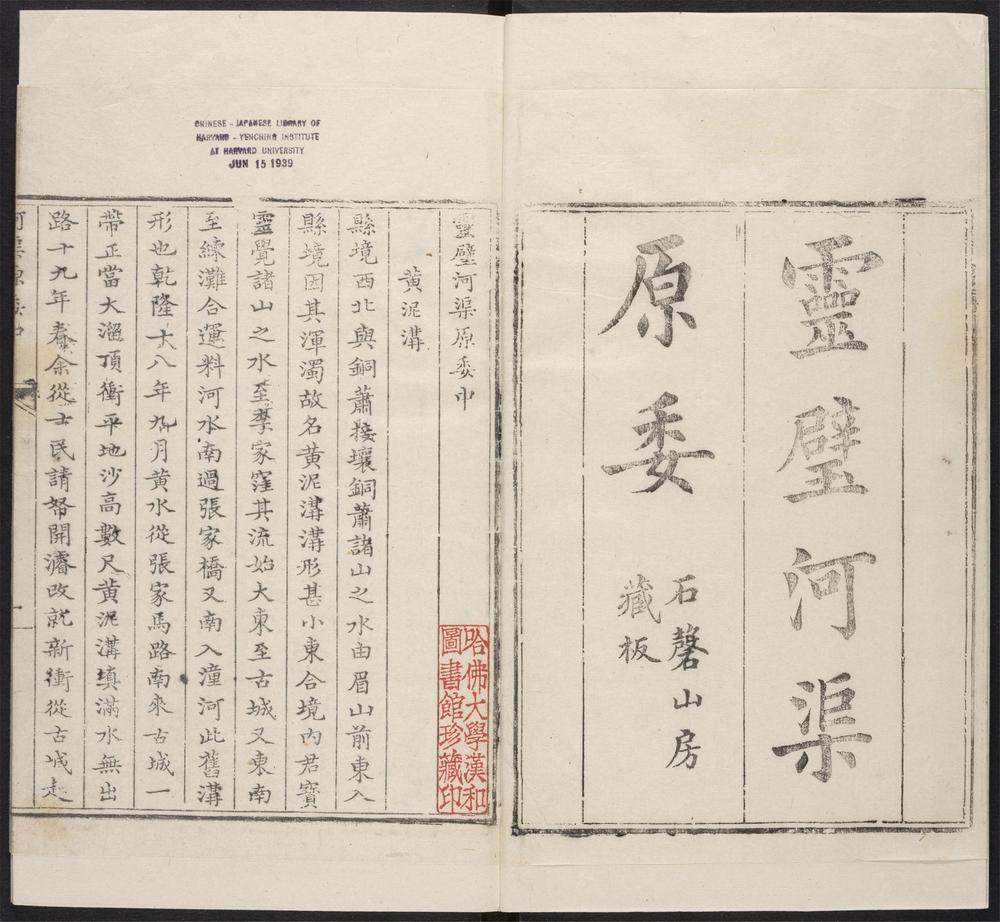 靈璧河渠
原委
石磬山房
藏板
CHINESE - JAPANESE LIBRARY OF
HARVARD - YENCHING INSTITUTE
AT HARVARD UNIVERSITY
JUN 15 1939
靈璧河渠原委中
黃泥溝
縣境西北與銅蕭接壤銅蕭諸山之水由眉山前東入
縣境因其渾濁故名黃泥溝溝形甚小東合境內君寳
靈覺諸山之水至李家窪其流始大東至古城又東南
至練灘合運料河水南過張家橋又南入潼河此舊溝
形也乾隆十八年九月黃水從張家馬路南來古城一
帶正當大溜頂衝平地沙高數尺黃泥溝填滿水無出
路十九年春余從士民請帑開濬改就新衝從古城走
河渠原委中
一
哈佛大學漢和
圖書館珍藏印